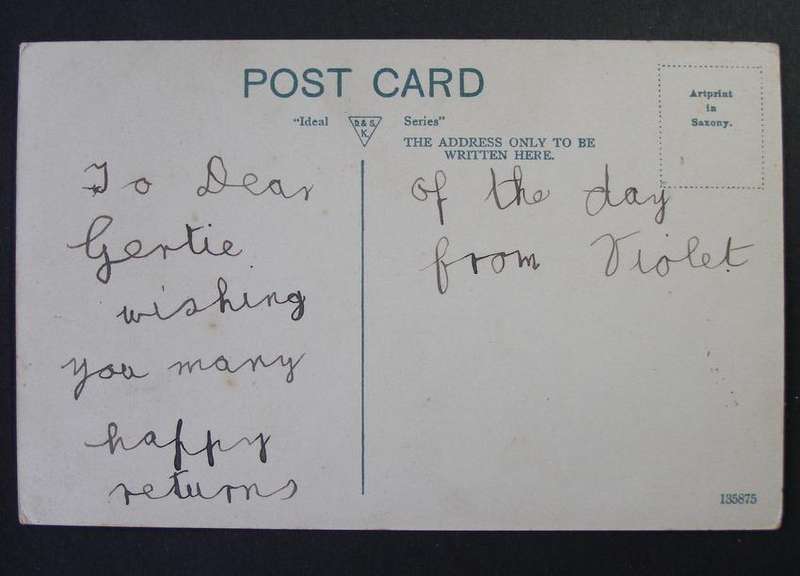 POST CARD
"Ideal D.& S. K. Series"
THE ADDRESS ONLY TO BE
WRITTEN HERE.
Artprint
in
Saxony.
To Dear
Gertie
wishing
you many
happy
returns
of the day
from Violet
135875